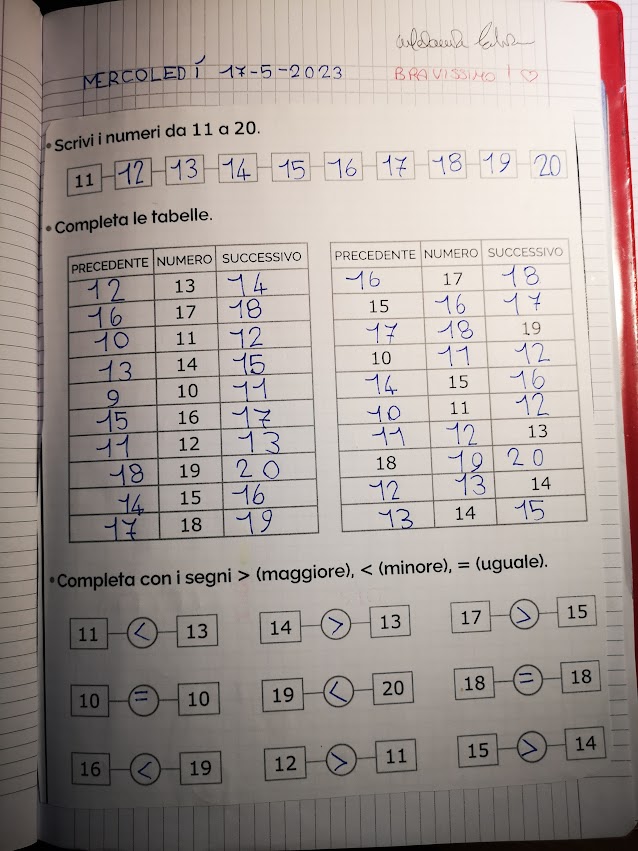 MERCOLEDÍ 17-5-2023
BRAVISSIMO! ♡
• Scrivi i numeri da 11 a 20.
11 12 13 14 15 16 17 18 19 20
• Completa le tabelle.
PRECEDENTE NUMERO SUCCESSIVO
12 13 14
16 17 18
10 11 12
13 14 15
9 10 11
15 16 17
11 12 13
18 19 20
14 15 16
17 18 19
PRECEDENTE NUMERO SUCCESSIVO
16 17 18
15 16 17
17 18 19
10 11 12
14 15 16
10 11 12
11 12 13
18 19 20
12 13 14
13 14 15
• Completa con i segni > (maggiore), < (minore), = (uguale).
11 < 13 14 > 13 17 > 15
10 = 10 19 < 20 18 = 18
16 < 19 12 > 11 15 > 14